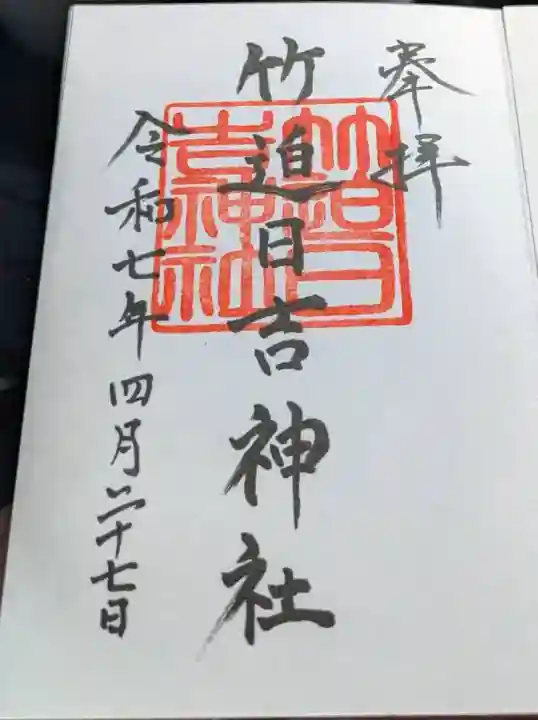 奉拝
竹迫日吉神社
令和七年四月二十七日
竹迫日吉神社